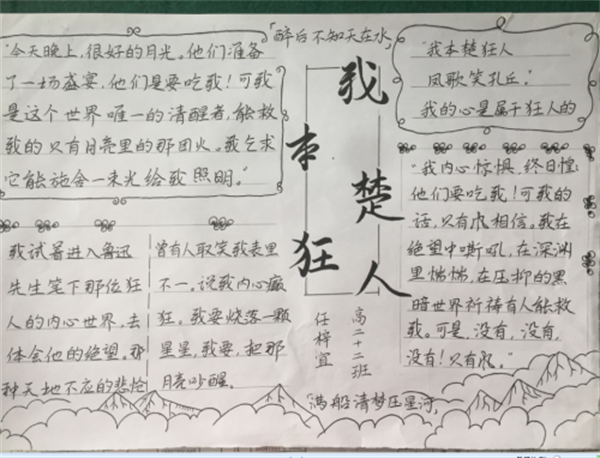 "今天晚上,很好的月光。他们准备
了一场盛宴,他们是要吃我!可我
是这个世界唯一的清醒者,能救
我的只有月亮里的那团火。我乞求
它能施舍一束光给我照明。"
「醉后不知天在水,
我本楚狂人
"我本楚狂人
凤歌笑孔丘。"
我的心是属于狂人的
"我内心惊惧,终日惶
他们要吃我!可我的
话,只有风相信。我在
绝望中嘶吼,在深渊
里惴惴,在压抑的黑
暗世界祈祷有人能救
我。可是,没有,没有,
没有!只有风。"
我试着进入鲁迅
先生笔下那位狂
人的内心世界,去
体会他的绝望。那
种天地不应的悲怆
曾有人取笑我表里
不一。说我内心癫
狂。我要烧落一颗
星星,我要,把那
月亮吵醒。
高二十二班
任梓宜
满船清梦压星河,